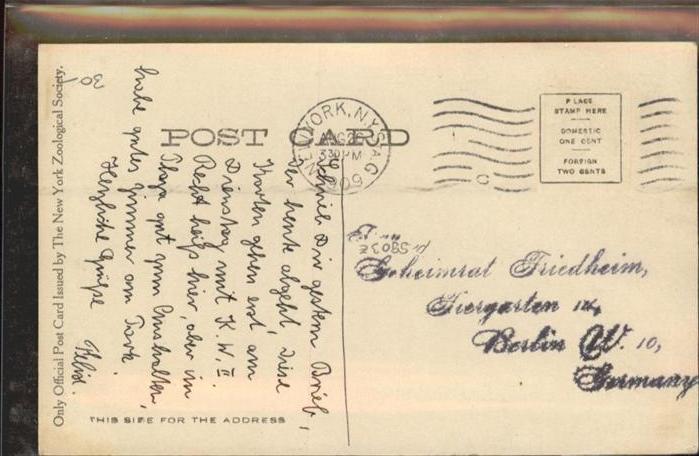 Only Official Post Card Issued by The New York Zoological Society.
POST CARD
NEW YORK, N.Y. STA. G
AUG 20
330PM
1909
PLACE
STAMP HERE
DOMESTIC
ONE CENT
FOREIGN
TWO CENTS
Schrieb Dir gestern Brief,
der heute abgeht, diese
Karten gehen erst am
Dienstag mit K. W. II.
Recht heiß hier, aber im
Playa gut zum Aushalten,
habe gutes Zimmer am Park.
Herzliche Grüße
Felix.
30
Geheimrat Friedheim,
Tiergarten
Berlin W. 10,
Germany
THIS SIDE FOR THE ADDRESS